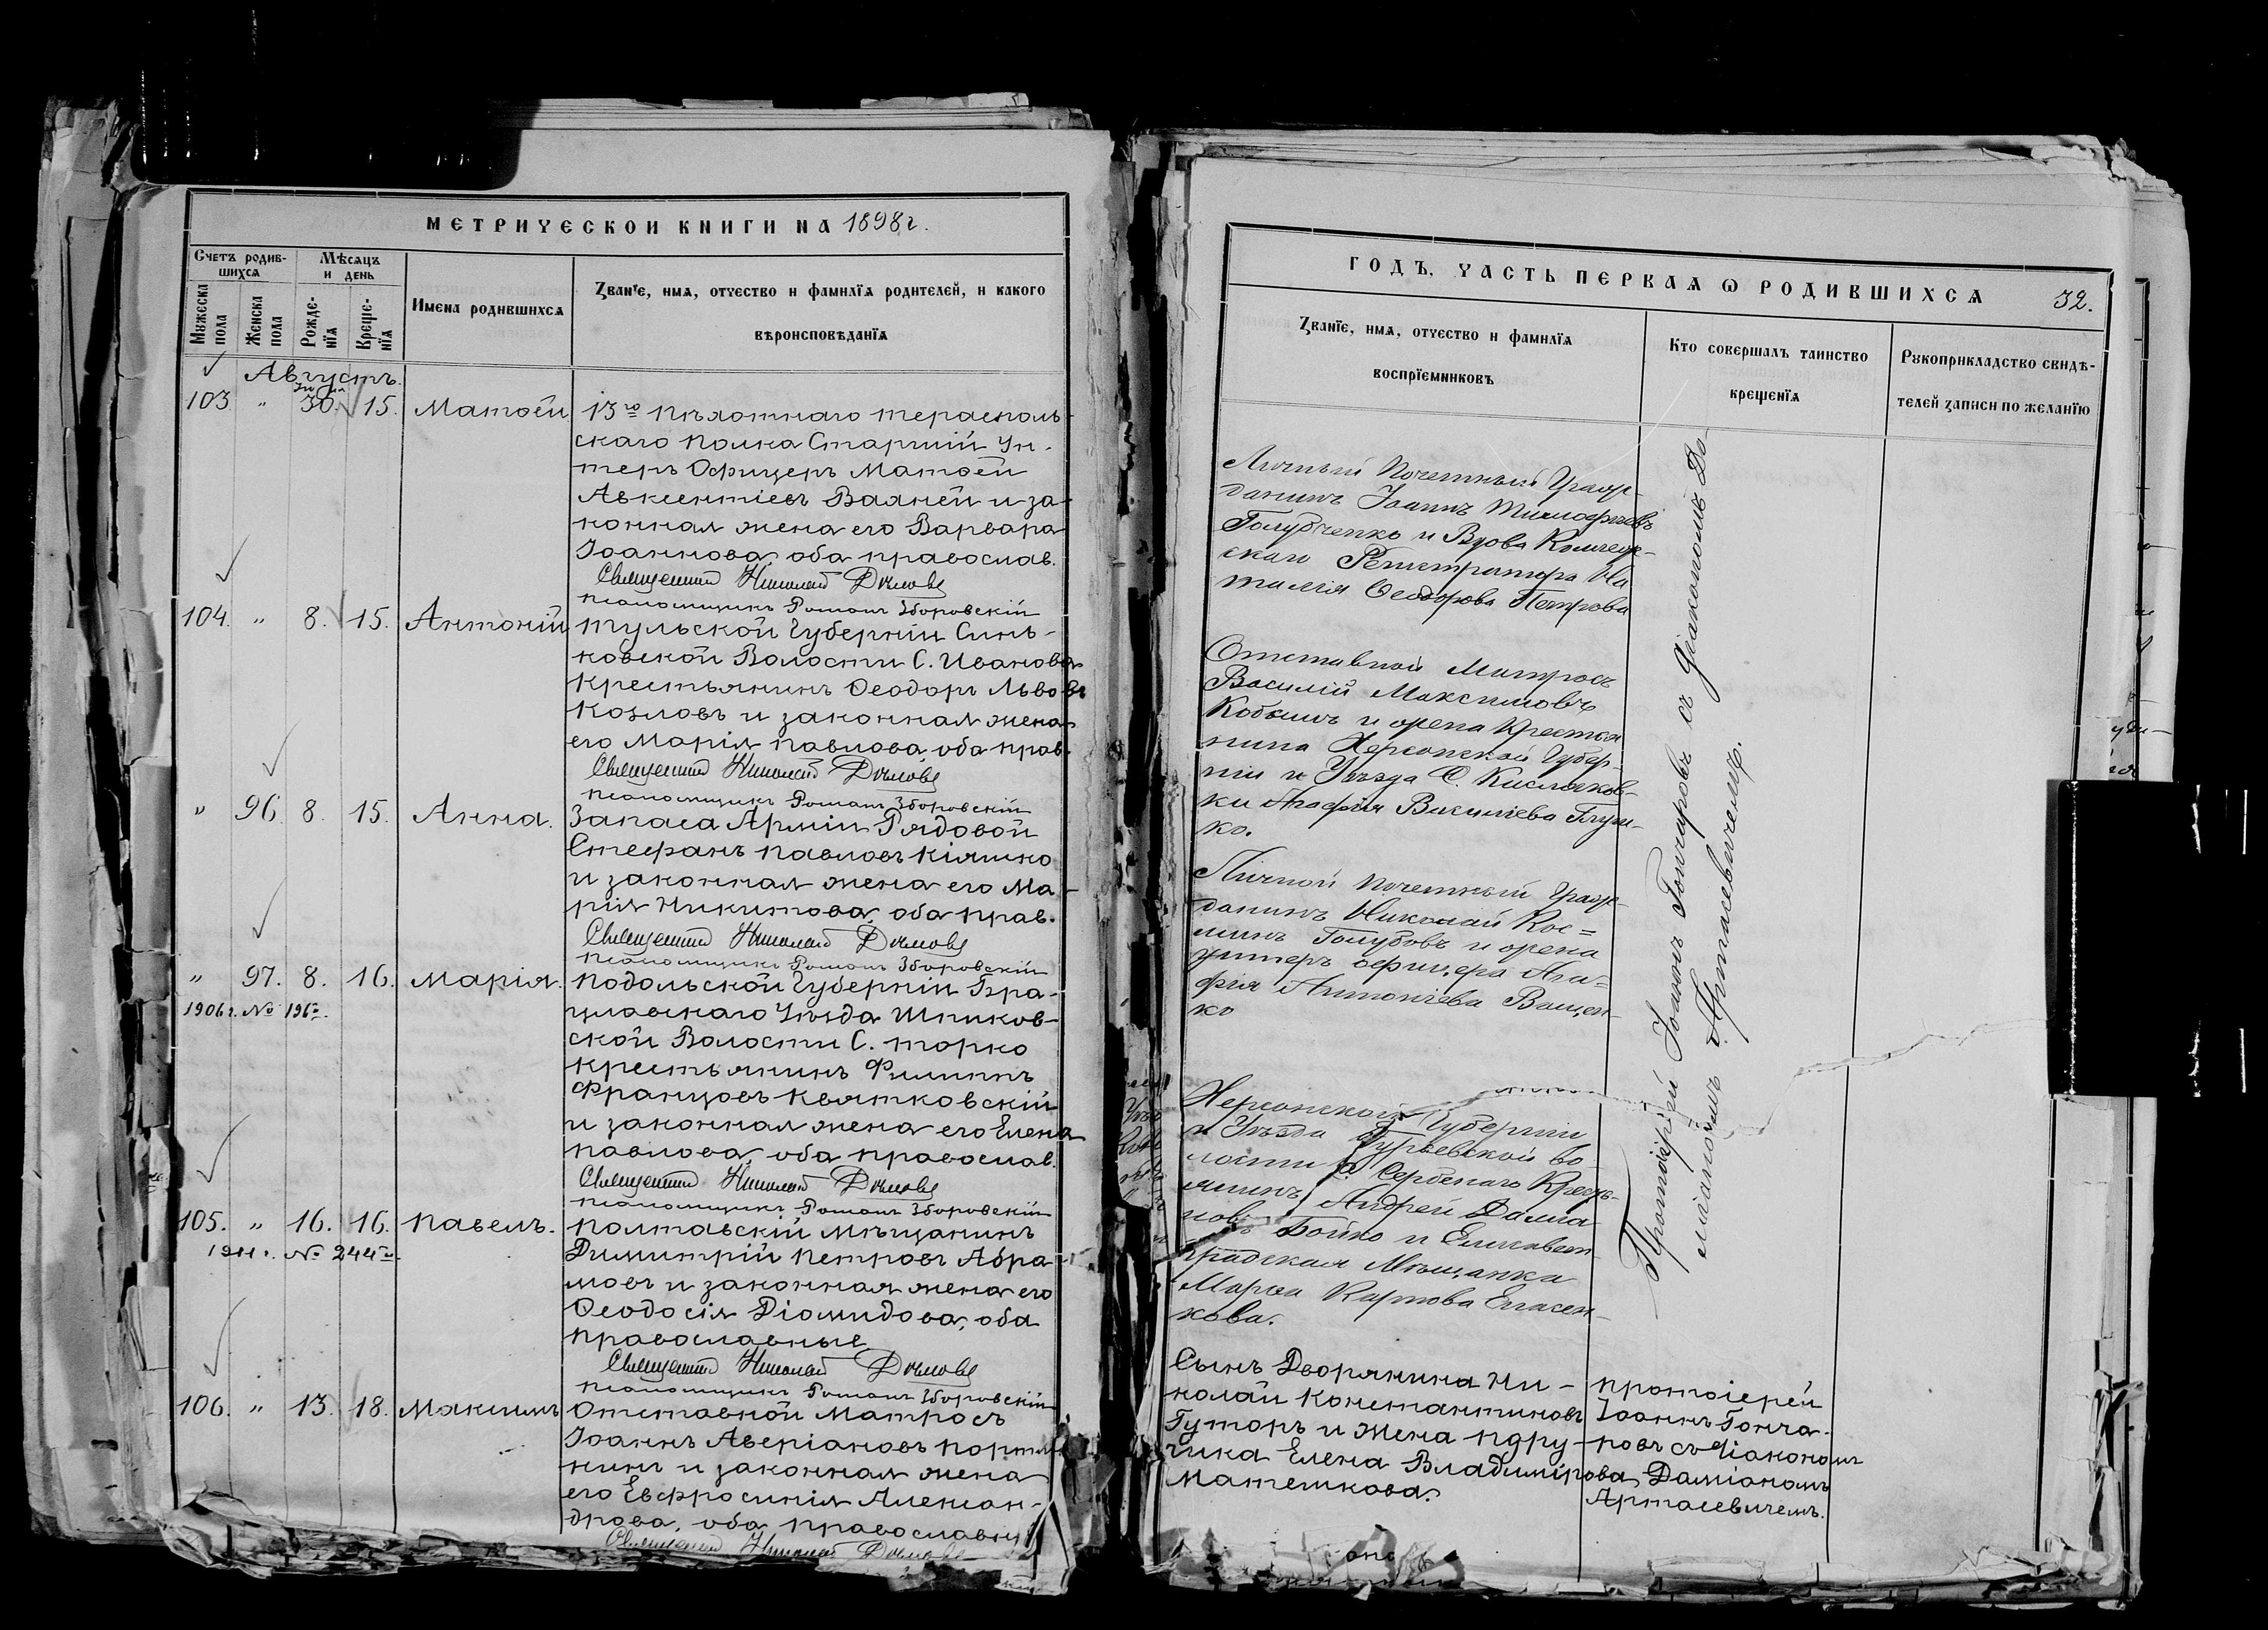 МЕТРИЧЕСКОЙ КНИГИ НА 1898 г.
Счетъ родив-
шихся
Мѣсяцъ
и день
Мужеска
пола
Женска
пола
Рожде-
нїя
Креще-
нїя
Имена родившихся
Званїе, имя, отчество и фамилїя родителей, и какого
вѣроисповѣданїя
Августъ.
103. " 30. 15. Матѳей
13го Пѣхотнаго Тераеполь-
скаго Полка Старшій Ун-
теръ Офицеръ Матѳей
Авксентіевъ Ваяней и за-
конная жена его Варвара
Іоаннова, оба православ.
Священникъ Николай
Псаломщикъ Романъ Зборовскій
104. " 8. 15. Антоній
Тульской Губерніи Синь-
ковской Волости С. Иванова
Крестьянинъ Ѳеодоръ Львовъ
Козловъ и законная жена
его Марія Павлова, оба прав.
Священникъ Николай
Псаломщикъ Романъ Зборовскій
" 96. 8. 15. Анна.
Запаса Арміи Рядовой
Стефанъ Павловъ Кіяшко
и законная жена его Ма-
рія Никитова, оба прав.
Священникъ Николай
Псаломщикъ Романъ Зборовскій
" 97. 8. 16. Марія.
1906 г. № 196
Подольской Губерніи Бра-
цлавскаго Уѣзда Шпиков-
ской Волости С. Торко
Крестьянинъ Филиппъ
Францовъ Квятковскій
и законная жена его Елена
Павлова, оба православ.
Священникъ Николай
Псаломщикъ Романъ Зборовскій
105. " 16. 16. Павелъ.
1911 г. № 244
Полтавскій Мѣщанинъ
Димитрій Петровъ Абра-
мовъ и законная жена его
Ѳеодосія Діомидова, оба
православные
Священникъ Николай
Псаломщикъ Романъ Зборовскій
106. " 13. 18. Максимъ
Отставной Матросъ
Іоаннъ Аверіановъ Порт
кинъ и законная жена
его Евфросинія Алексан-
дрова, оба православны
Священникъ Николай
ГОДЪ, ЧАСТЬ ПЕРВАЯ Ѡ РОДИВШИХСЯ 32.
Званїе, имя, отчество и фамилїя
воспрїемниковъ
Кто совершалъ таинство
крещенїя
Рукоприкладство свидѣ-
телей записи по желанїю
Личный Почетный Граж-
данинъ Іоаннъ Тимофеевъ
Голубченко и Вдова Коллеж-
скаго Регистратора На
талія Ѳеодорова Петрова
Отставной Матросъ
Василій Максимовъ
Кобкинъ и жена Крестья
нина Херсонской Губер-
ніи и Уѣзда С. Кисляков-
ки Агафія Василіева Глуш-
ко.
Личной Почетный Граж-
данинъ Николай Кос=
минъ Голубовъ и жена
унтеръ офицера Ага=
фія Антоніева Ващен-
ко
Херсонской Губерніи
и Уѣзда Гурьевской во-
лости С. Сербенаго Кресть-
янинъ Андрей Дамиа-
новъ Бойко и Елисавет-
градская Мѣщанка
Марѳа Карпова Евласен-
кова.
Протоіерей Іоаннъ Гончаровъ съ діакономъ До-
миліаномъ Артасевичемъ.
Сынъ Дворянина Ни-
колай Константиновъ
Гуторъ и Жена Пору-
чика Елена Владимірова
Матешкова.
Протоіерей
Іоаннъ Гонча-
ровъ съ діакономъ
Даміаномъ
Артасевичемъ.